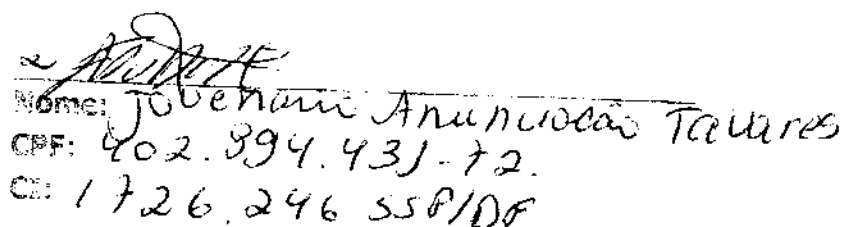 2
Nome: Jovenani Anunciação Tavares
CPF: 402.994.431-72.
CI: 1726.246 SSP/DF